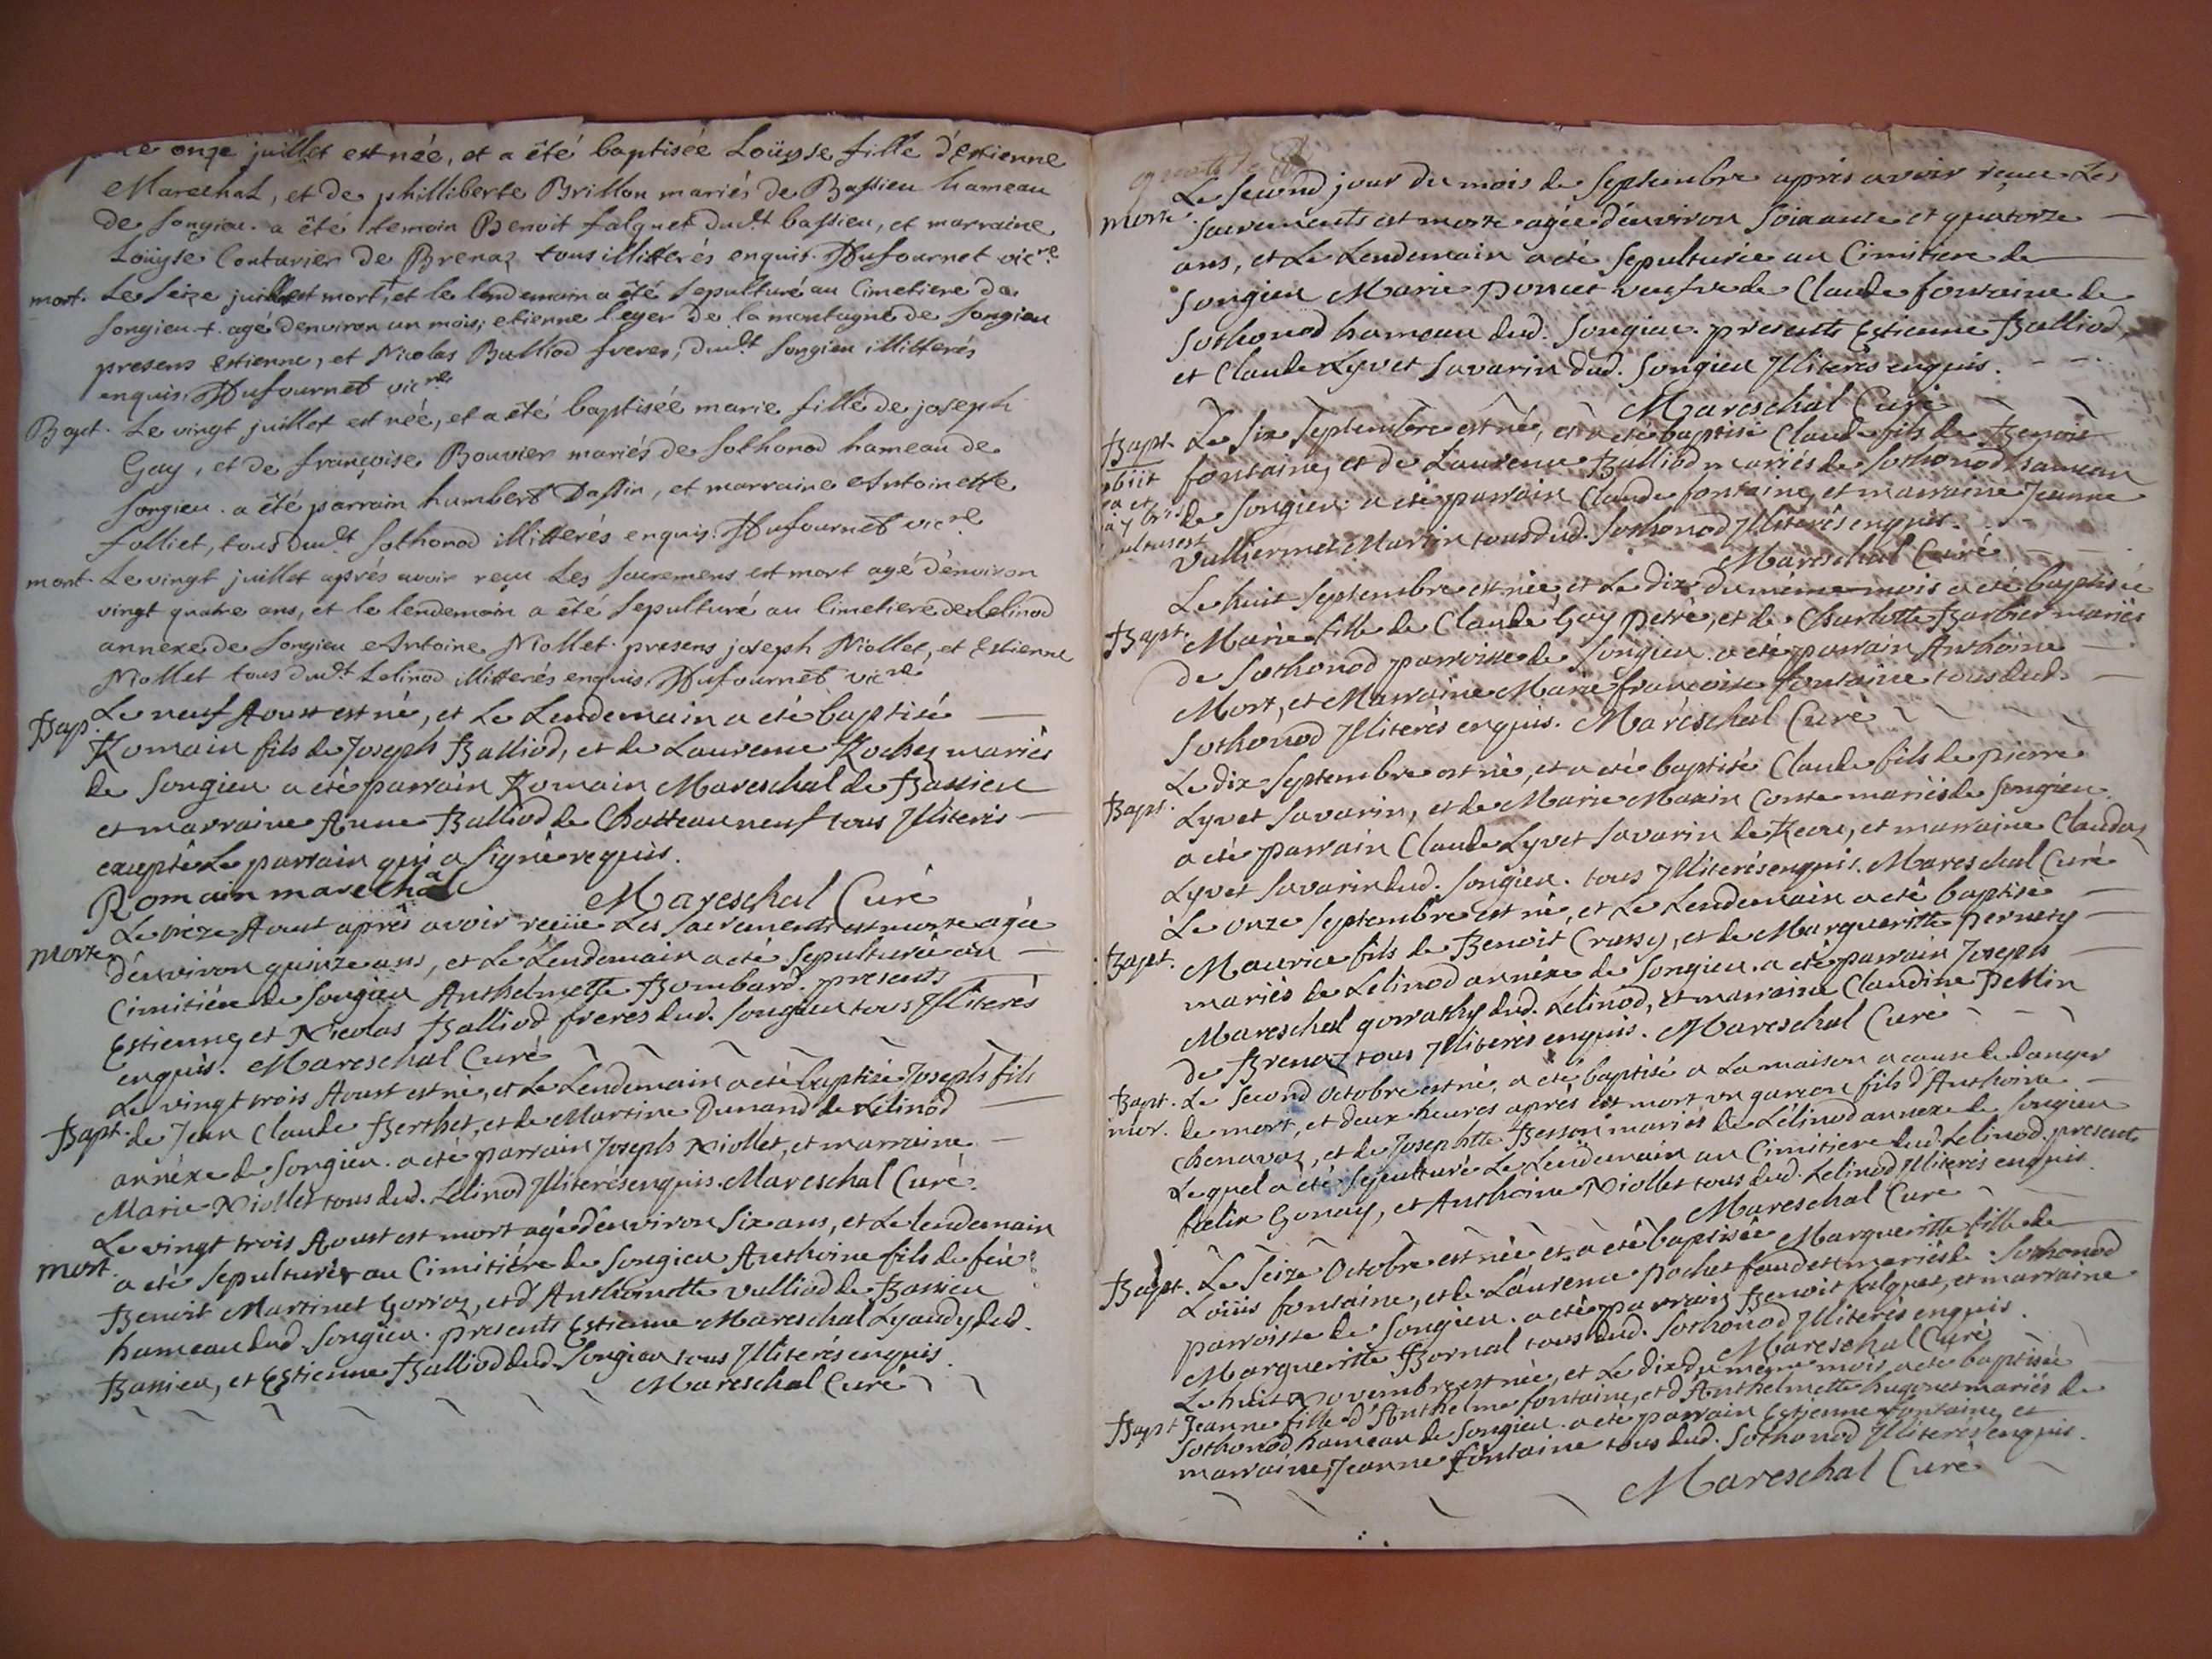 Le onze juillet est née, et a été baptisée Loüyse fille d'Estienne
Marechal, et de philliberte Brillon mariés de Bassieu hameau
de songieu. a été temoin Benoit falquet dudt bassieu, et marraine
Loüyse Contavier de Brenaz tous illitterés enquis. Dufournet vicre
mort. Le seize juillet est mort, et le lendemain a été sepulturé au Cimetiere de
songieu + agé denviron un mois, etienne leyer de la montagne de songieu
presens Estienne, et Nicolas Balliod freres, dudt songieu illitterés
enquis. Dufournet vicre
Bapt. Le vingt juillet est née, et a été baptisée marie fille de joseph
Gay, et de françoise Bouvier mariés de sothonod hameau de
songieu. a été parrain humbert Dassin, et marraine Antoinette
folliet, tous dudt sothonod illitterés enquis. Dufournet vicre
mort. Le vingt juillet aprés avoir reçu Les sacremens est mort agé d'environ
vingt quatre ans, et le lendemain a été sepulturé au Cimetiere de Lelinod
annexe de songieu Antoine Niollet. presens joseph Niollet, et Estienne
Niollet tous dudt Lelinod illitterés enquis. Dufournet vicre
Bap. Le neuf Aoust est né, et Le Lendemain a eté baptisé
Romain fils de Joseph Balliod, et de Laurence Rochez mariés
de Songieu a eté parrain Romain Mareschal de Bassieu
et marraine Anne Balliod de Chatteauneuf tous Jlliterés
excepté Le parrain qui a signé requis.
Romain marechal Mareschal Curé
morte Le treze Aoust aprés avoir reçüe Les Sacrements est morte agée
d'environ quinze ans, et Le Lendemain a eté Sepulturée au
Cimitiére de Songieu Anthelmette Bombard. presents
Estienne, et Nicolas Balliod freres dud. Songieu tous Jlliterés
enquis. Mareschal Curé
Le vingt trois Aoust est né, et Le Lendemain a eté baptisé Joseph fils
Bapt. de Jean Claude Berthet, et de Martine Dunand de Lélinod
annéxe de Songieu. a eté parrain Joseph Niollet, et marraine
Marie Niollet tous dud. Lélinod Jlliterés enquis. Mareschal Curé
Le vingt trois Aoust est mort agé d'environ Six ans, et Le lendemain
mort. a eté Sepulturér au Cimitiére de Songieu Anthoine fils de feü
Benoit Martinet Gorroz, et d'Anthoinette vulliod de Bassieu
hameau dud. Songieu. presents Estienne Mareschal Lyaudy dud.
Bassieu, et Estienne Balliod dud. Songieu tous Jlliterés enquis.
Mareschal Curé
Le second jour du mois de Septembre aprés avoir reçue Les
morte Sacrements est morte agée d'environ Soixante et quatorze
ans, et Le Lendemain a eté Sepulturée au Cimitiere de
Songieu Marie poncet veufve de Claude fontaine de
Sothonod hameau dud. Songieu. presents Estienne Balliod,
et Claude Lyvet Savarin dud. Songieu Jlliterés enquis.
Mareschal Curé
Bapt. Le Six Septembre est né, et a eté baptisé Claude fils de Benoit
obiit fontaine, et de Laurence Balliod mariés de Sothonod hameau
de Songieu. a eté parrain Claude fontaine, et marraine Jeanne
Vulliermet Martin tous dud. Sothonod Jlliterés enquis.
Mareschal Curé
Le huit Septembre est née et Le dix du même mois a eté baptisée
Bapt. Marie fille de Claude Gay Petré, et de Charlotte Barbier mariés
de Sothonod parroisse de Songieu. a eté parrain Anthoine
Mort, et Marraine Marie françoise fontaine tous dud.
Sothonod Jlliterés enquis. Maréschal Curé
Le dix Septembre est né, et a eté baptisé Claude fils de pierre
Bapt. Lyvet Savarin, et de Marie Maxin Conte mariés de Songieu.
a eté parrain Claude Lyvet Savarin de, et marraine Claudaz
Lyvet Savarin dud. Songieu. tous Jlliterés enquis. Mareschal Curé
Le onze Septembre est né, et Le Lendemain a eté baptisé
Bapt. Maurice fils de Benoit Crussy, et de Margueritte Pernety
mariés de Lelinod annéxe de Songieu. a eté parrain Joseph
Mareschal gorrathy dud. Lelinod, et marraine Claudine Pellin
de Brenaz tous Jlliterés enquis. Mareschal Curé
Bapt. Le Second Octobre est né, a eté baptisé a La maison a cause de danger
mor. de mort, et deux heures apres est mort un garcon fils d'Anthoine
Chenavaz, et de Josephtte Besson mariés de Lélinod annexe de Songieu
Lequel a eté Sepulturé Le Lendemain au Cimitiere dud. Lelinod. presents
foelix Gonay, et Anthoine Niollet tous dud. Lelinod Jlliterés enquis.
Mareschal Curé
Bapt. Le Seize Octobre est née et a eté baptisée Margueritte fille de
Loüis fontaine, et de Laurence pochet faudet mariés de Sothonod
parroisse de Songieu. a eté parrain Benoit falquet, et marraine
Margueritte Bornal tous dud. Sothonod Jlliterés enquis.
Mareschal Curé
Le huit Novembre est née, et Le dix du même mois a eté baptisée
Bapt Jeanne fille d'Anthelme fontaine, et d'Anthelmette hugonet mariés de
Sothonod hameau de Songieu. a eté parrain Estienne fontaine, et
marraine Jeanne fontaine tous dud. Sothonod Jlliterés enquis.
Mareschal Curé